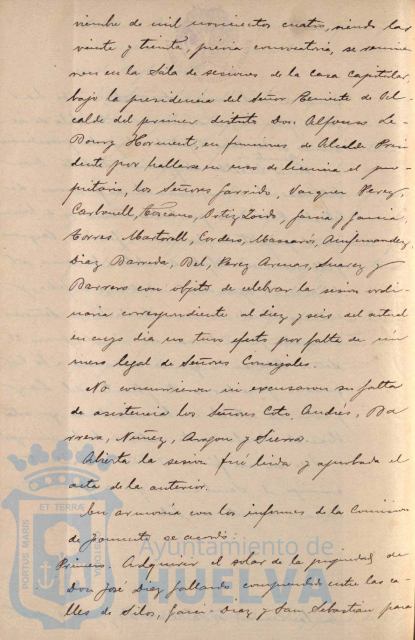 viembre de mil novecientos cuatro, siendo las
veinte y treinta, prévia convocatoria, se reunie
ron en la Sala de sesiones de la casa capitular,
bajo la presidencia del Señor Teniente de Al
calde del primer distrito Don Alfonso Le
Bourg Horment, en funciones de Alcalde Presi
dente por hallarse en uso de licencia el pro
pietario, los Señores Garrido, Vazquez Perez,
Carbonell, Toscano, Ortiz Zoido, García y García,
Torres Martorell, Cordero, Massarós,
Diaz Barreda, Bel, Perez Arenas, Suarez y
Barrero con objeto de celebrar la sesion ordi
naria correspondiente al diez y seis del actual
en cuyo dia no tuvo efecto por falta de nú
mero legal de Señores Concejales.
No concurrieron ni excusaron su falta
de asistencia los Señores Coto, Andrés, Ba
rrera, Nuñez, Aragon y Sierra.
Abierta la sesion fué leida y aprobada el
acta de la anterior.
En armonía con los informes de la Comision
de fomento se acordó:
Primero. Adquirir el solar de la propiedad de
Don José Diaz comprendido entre las ca
lles de Silos, Garci-Diaz y San Sebastian para
PORTUS MARIS
ET TERRAE
CUSTODIA
Ayuntamiento de
HUELVA